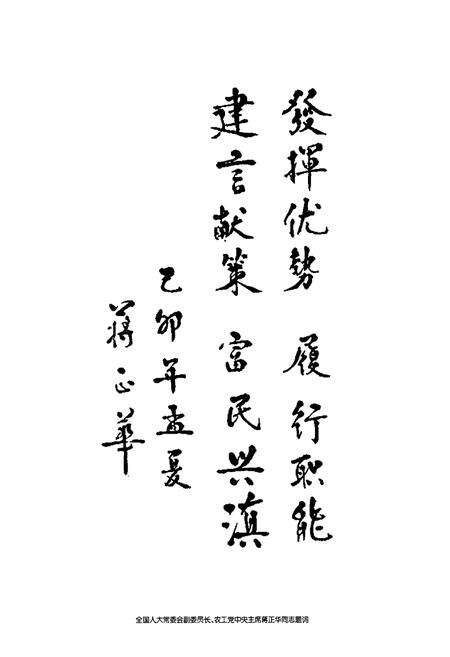 發揮优势 履行职能
建言献策 富民兴滇
己卯年孟夏
蒋正华
全国人大常委会副委员长、农工党中央主席蒋正华同志题词